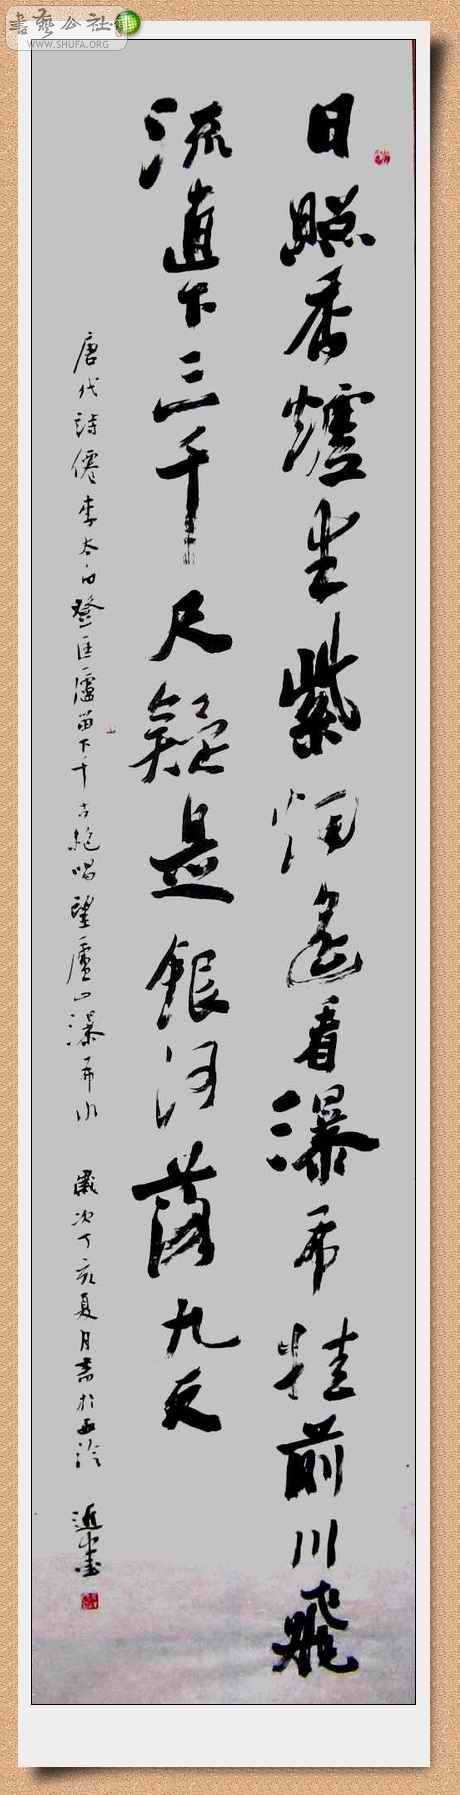 書藝公社
WWW.SHUFA.ORG
日照香爐生紫烟遙看瀑布挂前川飛
流直下三千尺疑是銀河落九天
唐代詩僊李太白登匡廬留下千古絕唱望廬山瀑布水 歲次丁亥夏月書於西泠